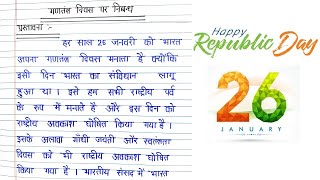 गणतंत्र दिवस पर निबन्ध
प्रस्तावना :-
हर साल 26 जनवरी को भारत
अपना गणतंत्र दिवस मनाता है क्योंकि
इसी दिन भारत का संविधान लागू
हुआ था। इसे हम सभी राष्ट्रीय पर्व
के रूप में मनाते हैं और इस दिन को
राष्ट्रीय अवकाश घोषित किया गया है।
इसके अलावा गाँधी जयंती और स्वतंत्रता
दिवस को भी राष्ट्रीय अवकाश घोषित
किया गया है। भारतीय संसद में भारत
Happy
Republic Day
26
JANUARY